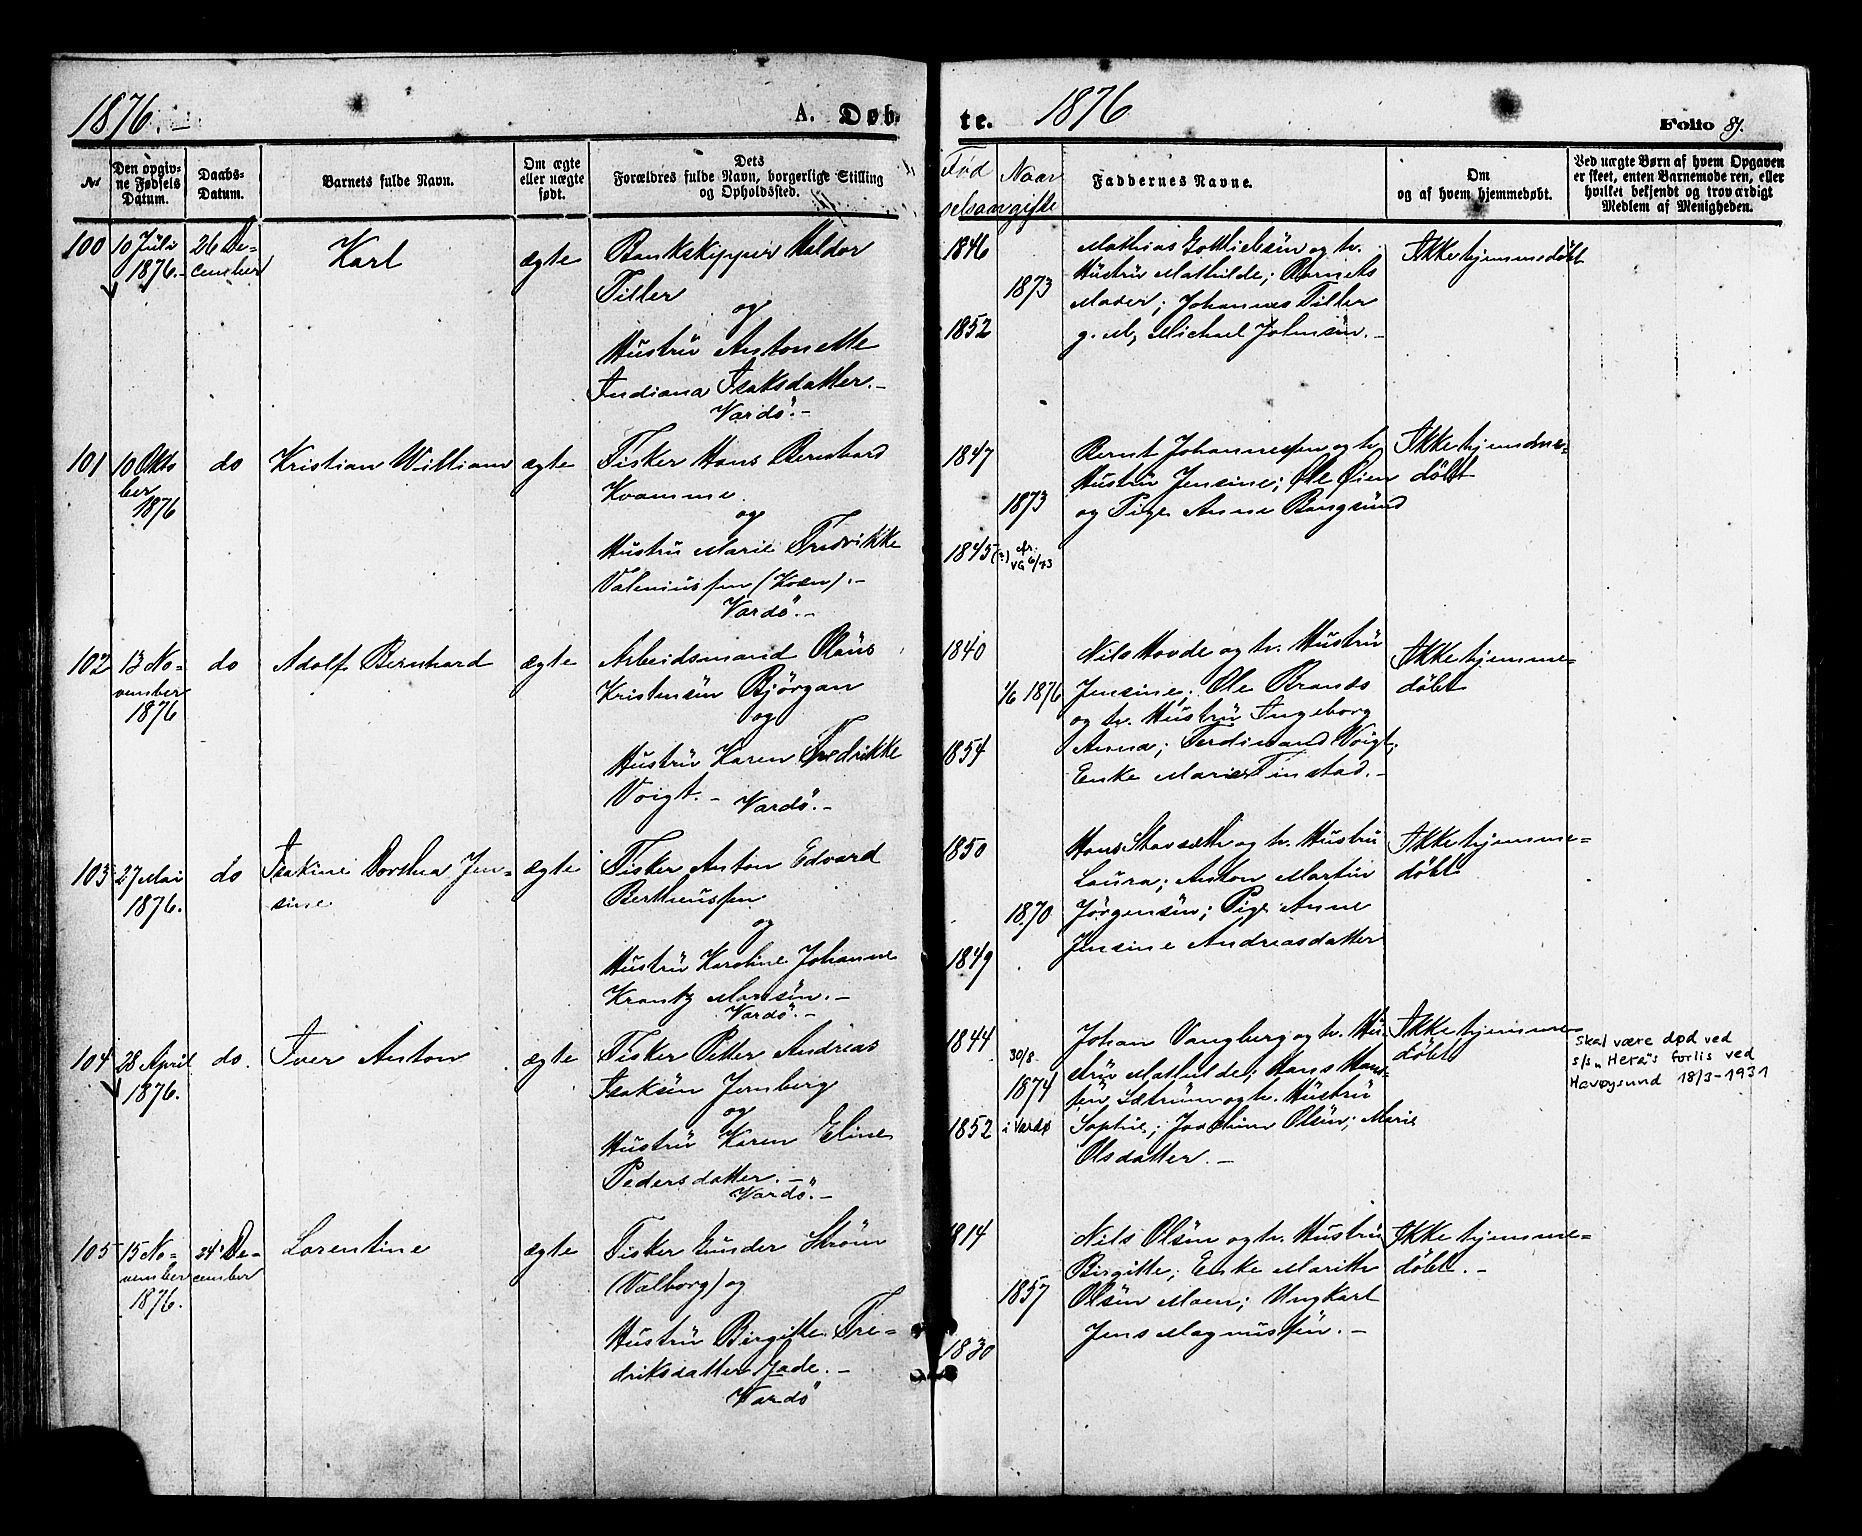 1876.
A. Døb-
te.
1876
Folio 81.
No
Den opgiv-
ne Fødsels
Datum.
Daabs-
Datum.
Barnets fulde Navn.
Om ægte
eller uægte
født.
Dets
Forældres fulde Navn, borgerlige Stilling
og Opholdssted.
Fød
selsaar
Naar
gifte
Faddernes Navne.
Om
og af hvem hjemmedøbt.
Ved uægte Børn af hvem Opgaven
er skeet, enten Barnemoderen, eller
hvilket bekjendt og troværdigt
Medlem af Menigheden.
100
10 Juli
1876.
26 De-
cember
Karl
ægte
Bankskipper Haldor
Tiller
og
Hustru Antonette
Indiana Isaksdatter.-
Vardö.-
1846
1873
1852
Mathias Gottliebsen og h.
Hustru Mathilde; Barnets
Moder; Johannes Tiller
g. M, Michael Johnsen.-
Ikke hjemmedöbt
101
10 Okto
ber
1876
do
Kristian William
ægte
Fisker Hans Bernhard
Kvamme
og
Hustru Marie Fredrikke
Valeniussen (Kvæn).-
Vardö.-
1847
1873
1845 (?)
VG 6/43
Bernt Johannessen og h.
Hustru Jensine; Ole Öien
og Pige Anne Bangsund
Ikke hjemme-
döbt
102
13 No-
vember
1876
do
Adolf Bernhard
ægte
Arbeidsmand Olaus
Kristensen Björgan
og
Hustru Karen Fredrikke
Voigt.- Vardö.-
1840
1/6 1876
1854
Nils Hovde og h. Hustru
Jensine; Ole Brands
og h. Hustru Ingeborg
Anna; Ferdinand Voigt;
Enke Marie Finstad.-
Ikke hjemme-
döbt
103
27 Mai
1876.
do
Isakine Dorthea Jen-
sine
ægte
Fisker Anton Edvard
Bertheussen
og
Hustru Karoline Johanne
Krantz Monsen.-
Vardö.-
1850
1870
1849
Hans Stavseth og h. Hustru
Laura; Anton Martin
Jörgensen; Pige Anne
Jensine Andreasdatter
Ikke hjemme-
döbt
104
28 April
1876.
do.
Iver Anton
ægte
Fisker Petter Andreas
Isaksen Jernberg
og
Hustru Karen Eline
Pedersdatter.-
Vardö.-
1844
30/8
1874
1852 i Vardø
Johan Vangberg og h. Hu-
stru Mathilde; Hans Han-
sen Sætrum og h. Hustru
Sophie; Joachim Olsen; Marie
Olsdatter.-
Ikke hjemme-
döbt
skal være død ved
s/s „Hera"s forlis ved
Havøysund 18/3-1931
105
15 No-
vember
1876.
24 De-
cember
Lorentine
ægte
Fisker Gunder Ström
(Valborg) og
Hustru Birgitte Fre-
driksdatter Jade.-
Vardö
1814
1857
1830
Nils Olsen og h. Hustru
Birgitte; Enke Marith
Olsen Moen; Ungkarl
Jens Magnussen.-
Ikke hjemme-
döbt.-